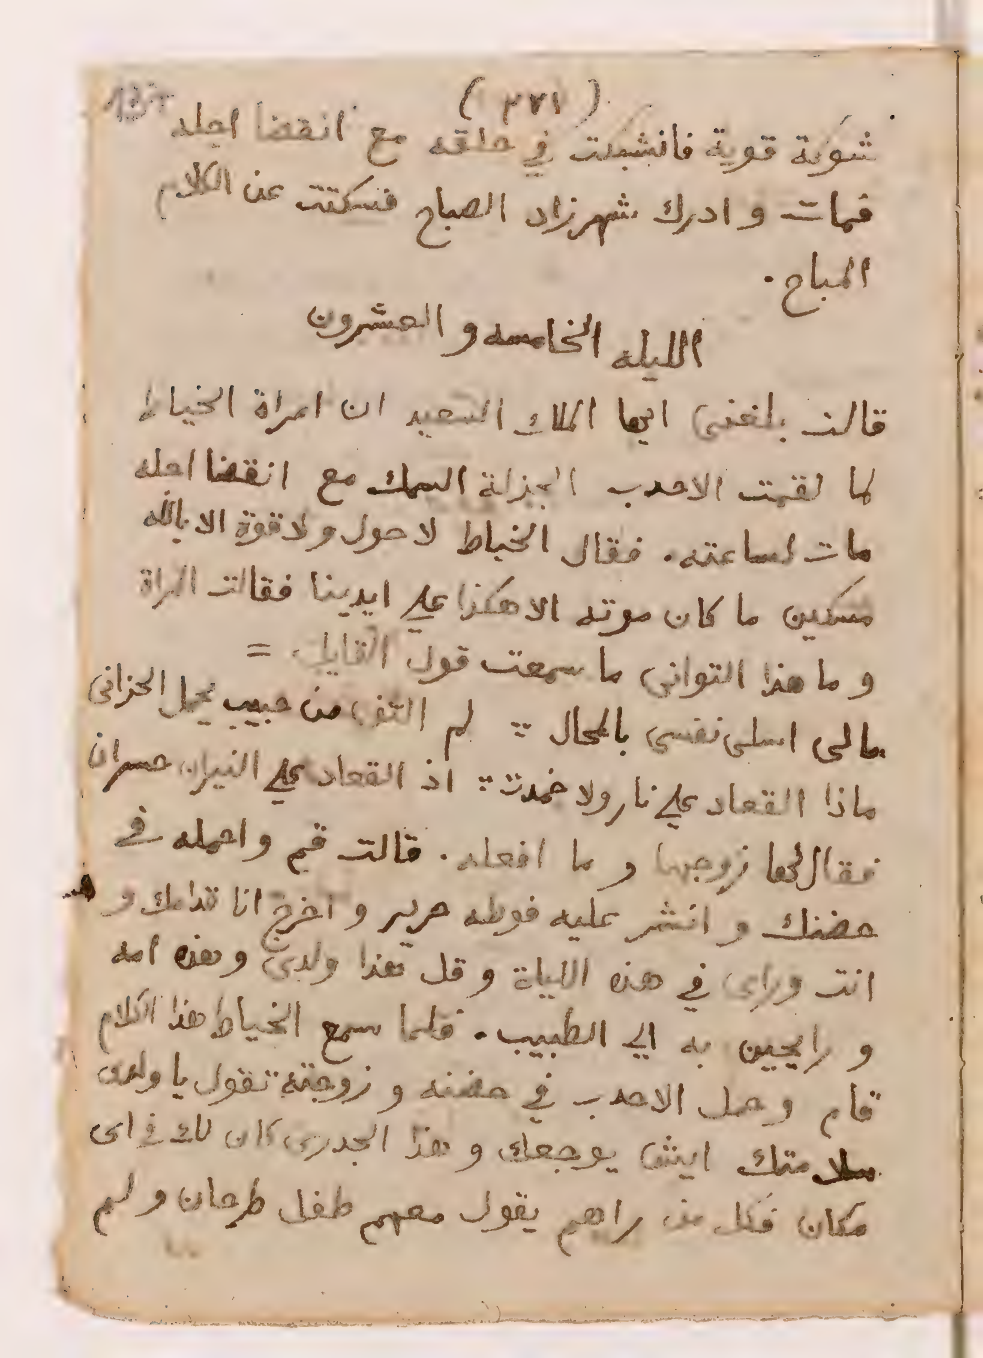 (٣٧١)
شوكة قوية فانشبكت في حلقه مع انقضا اجله
فمات و ادرك شهرزاد الصباح فسكتت عن الكلام
المباح.
الليله الخامسه و العشرون
قالت بلغني ايها الملك السعيد ان امراة الخياط
لما لقمت الاحدب الجزلة السمك مع انقضا اجله
مات لساعته. فقال الخياط لا حول و لا قوة الا بالله
مسكين ما كان موته الا هكذا علي ايدينا فقالت المراة
و ما هذا التواني ما سمعت قول القايل =
مالي اسلي نفسي بالمحال :: لم التقي من حبيب يحمل الحزاني
ماذا القعاد علي نار ولا خمدت :: اذ القعاد علي النيران خسران
فقال لها زوجها و ما افعله. قالت قم و احمله في
حضنك و انشر عليه فوطه حرير و اخرج انا قدامك و
انت وراي في هذه الليلة و قل هذا ولدي و هذه امه
و رايحين به الي الطبيب. فلما سمع الخياط هذا الكلام
قام وحمل الاحدب في حضنه و زوجته تقول يا ولدي
سلامتك ايش يوجعك و هذا الجدري كان لك في اي
مكان فكل من راهم يقول معهم طفل طرحان و لم